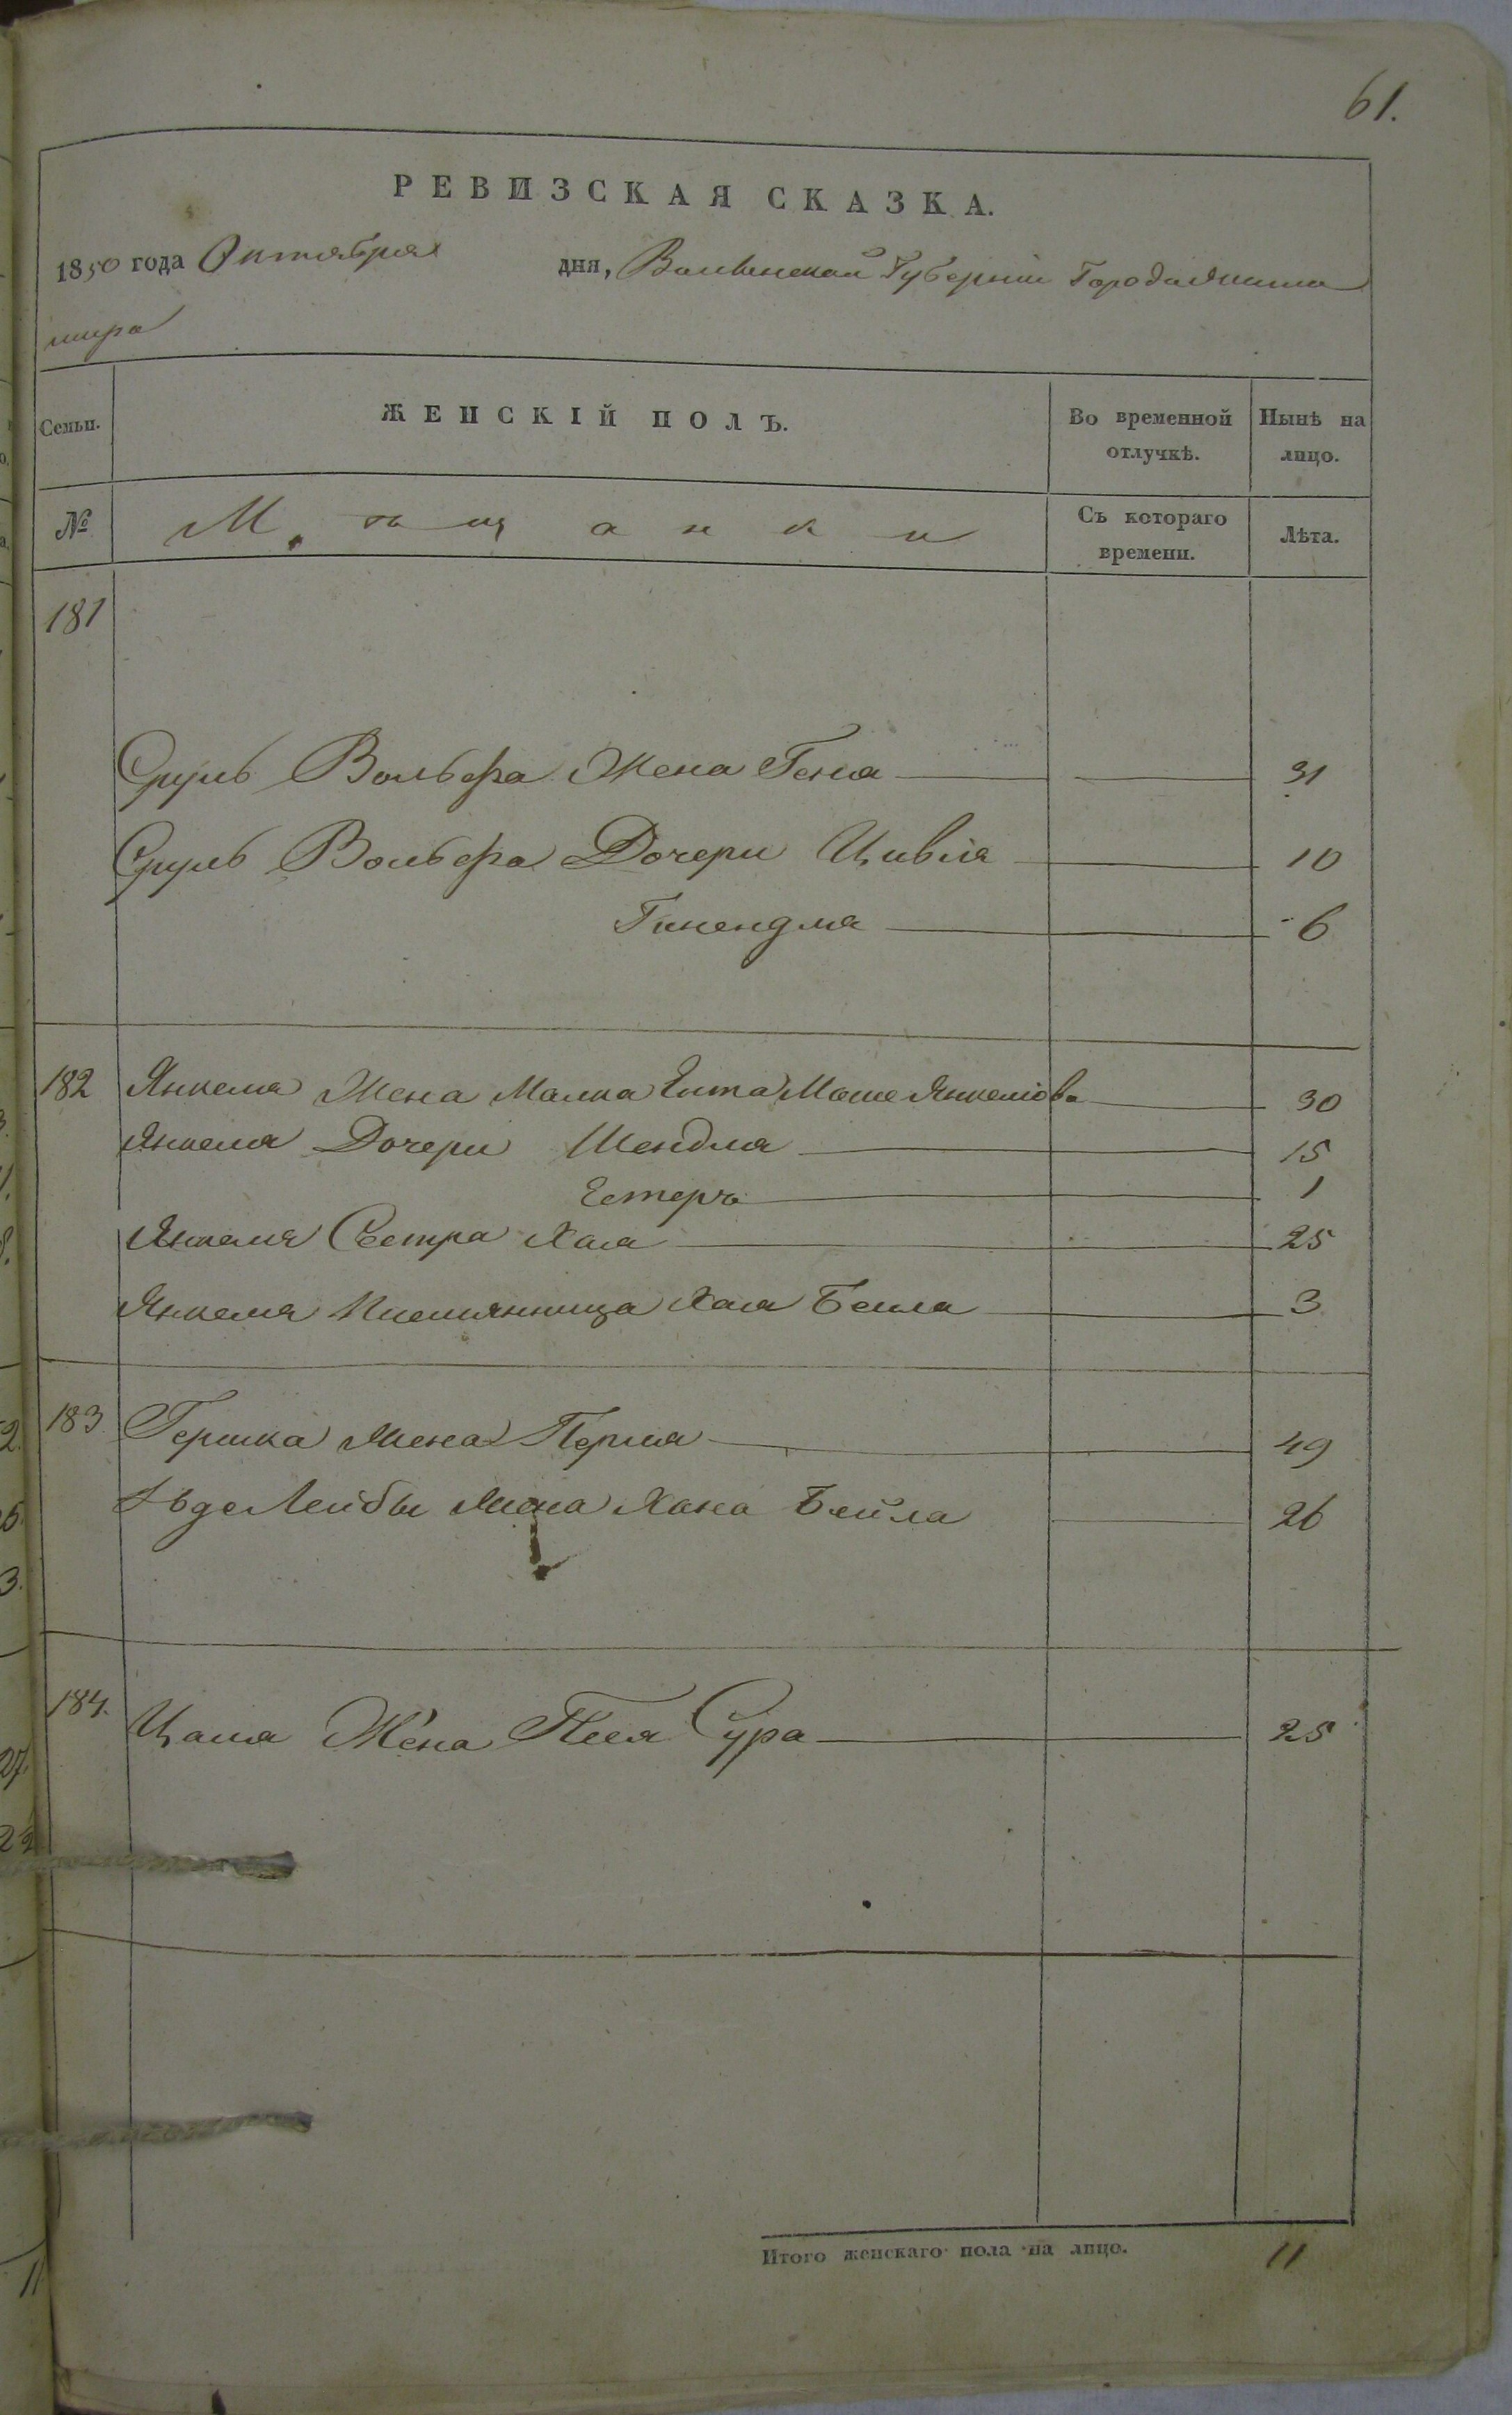 61.
РЕВИЗСКАЯ СКАЗКА.
1850 года Октября дня, Волынской Губернии Города Жито
мира
Семьи. ЖЕНСКІЙ ПОЛЪ. Во временной отлучкѣ. Нынѣ на лицо.
№ Мѣщанки Съ котораго времени. Лѣта.
181
Сруль Вольфа Жена Геня 31
Сруль Вольфа Дочери Цивля 10
Гинендля 6
182 Янкеля Жена Малка Ента Моше Янкелюва 30
Янкеля Дочери Шендля 15
Естеръ 1
Янкеля Сестра Хая 25
Янкеля Племянница Хая Бейла 3
183 Гершка Жена Перля 49
Лейбы Жена Хана Бейла 26
184. Жена Песя Сура 25
Итого женскаго пола на лицо. 11